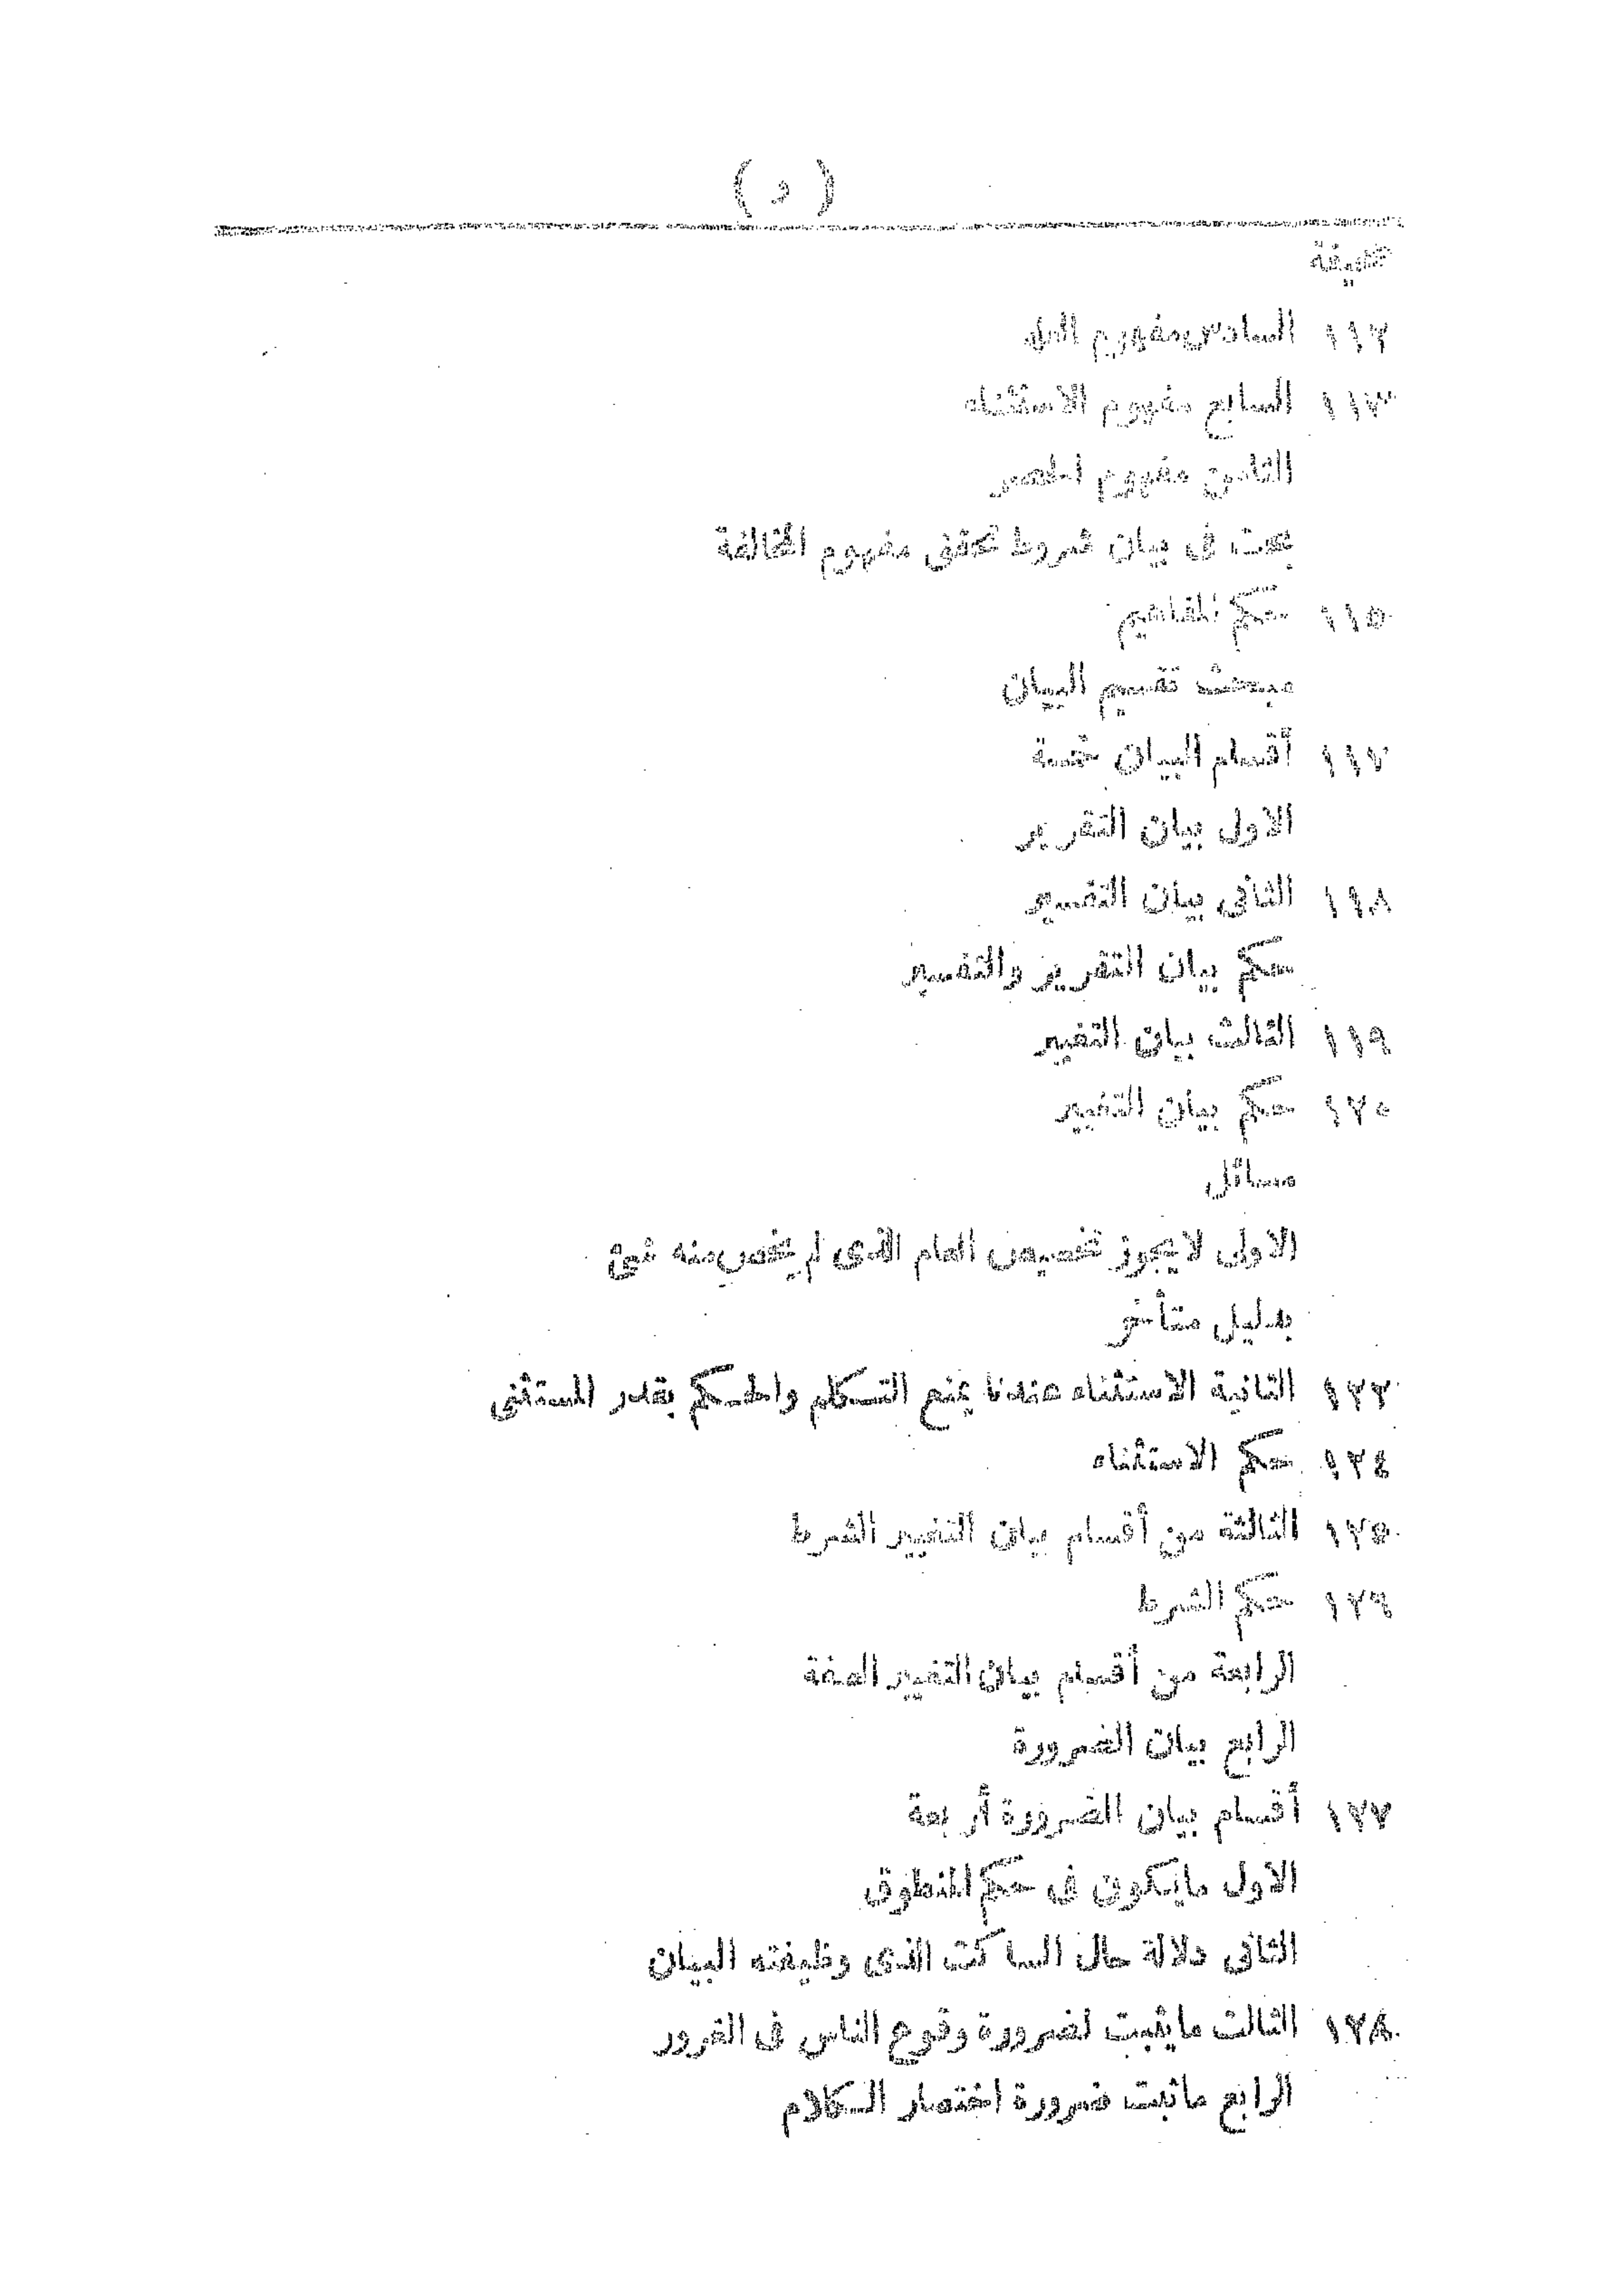 ( و )
صحيفة
١١٢ السادس مفهوم
١١٣ السابع مفهوم الاستثناء
الثامن مفهوم الحصر
بحث فى بيان شروط تحقق مفهوم المخالفة
١١٥ حكم المفاهيم
مبحث تقسيم البيان
١١٧ أقسام البيان خمسة
الاول بيان التقرير
١١٨ الثانى بيان التفسير
حكم بيان التقرير والتفسير
١١٩ الثالث بيان التغيير
١٢٠ حكم بيان التغيير
مسائل
الاولى لايجوز تخصيص العام الذى لم يخص منه شئ
بدليل متأخر
١٢٢ الثانية الاستثناء عندنا يمنع التكلم والحكم بقدر المستثنى
١٢٤ حكم الاستثناء
١٢٥ الثالثة من أقسام بيان التغيير الشرط
١٢٦ حكم الشرط
الرابعة من أقسام بيان التغيير الصفة
الرابع بيان الضرورة
١٢٧ أقسام بيان الضرورة أربعة
الاول مايكون فى حكم المنطوق
الثانى دلالة حال الساكت الذى وظيفته البيان
١٢٨ الثالث مايثبت لضرورة وقوع الناس فى الغرور
الرابع ماثبت ضرورة اختصار الكلام